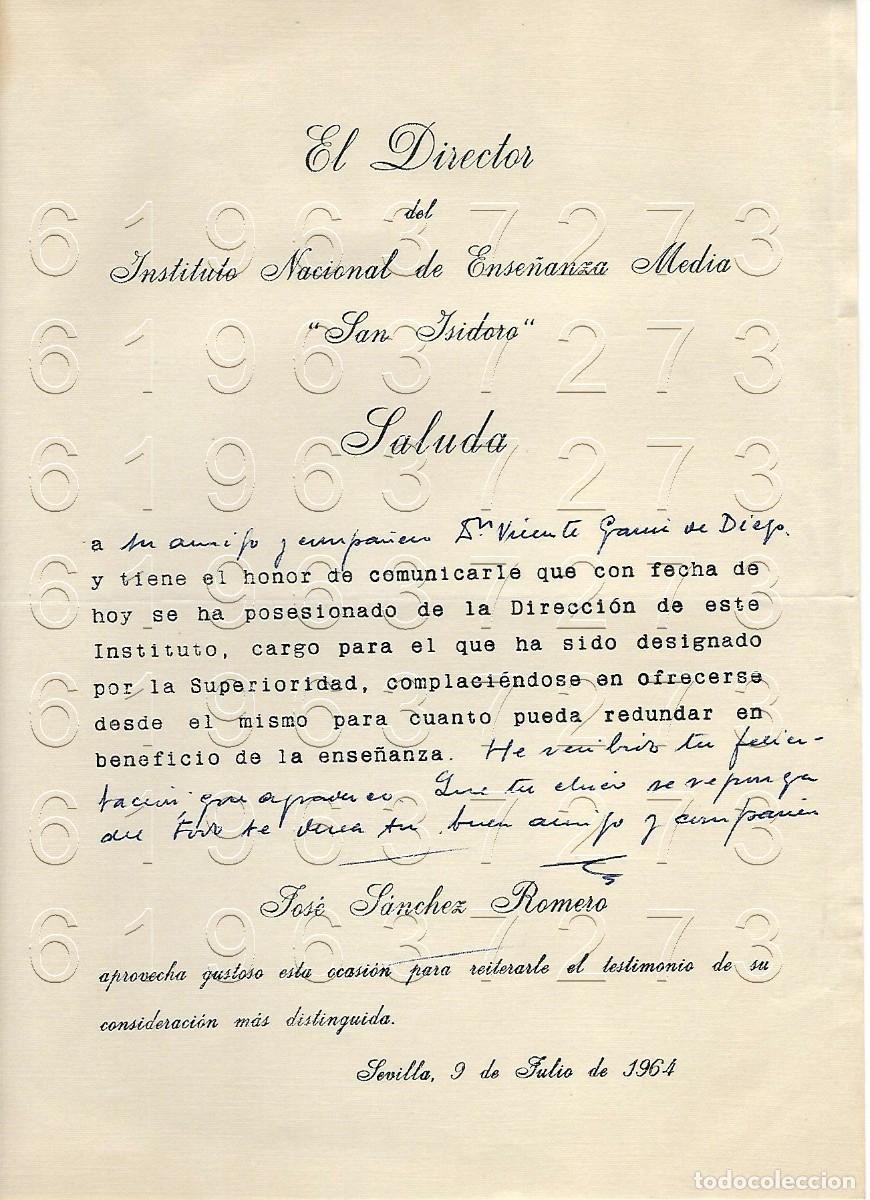 El Director
del
Instituto Nacional de Enseñanza Media
"San Isidoro"
Saluda
a su amigo y compañero Dn Vicente García de Diego.
y tiene el honor de comunicarle que con fecha de
hoy se ha posesionado de la Dirección de este
Instituto, cargo para el que ha sido designado
por la Superioridad, complaciéndose en ofrecerse
desde el mismo para cuanto pueda redundar en
beneficio de la enseñanza. He recibido tu felici-
tación que agradezco. Que tu chico se reponga
del todo te desea tu buen amigo y compañero
José Sánchez Romero
aprovecha gustoso esta ocasión para reiterarle el testimonio de su
consideración más distinguida.
Sevilla, 9 de Julio de 1964
619637273
619637273
619637273
619637273
619637273
619637273
619637273
todocoleccion